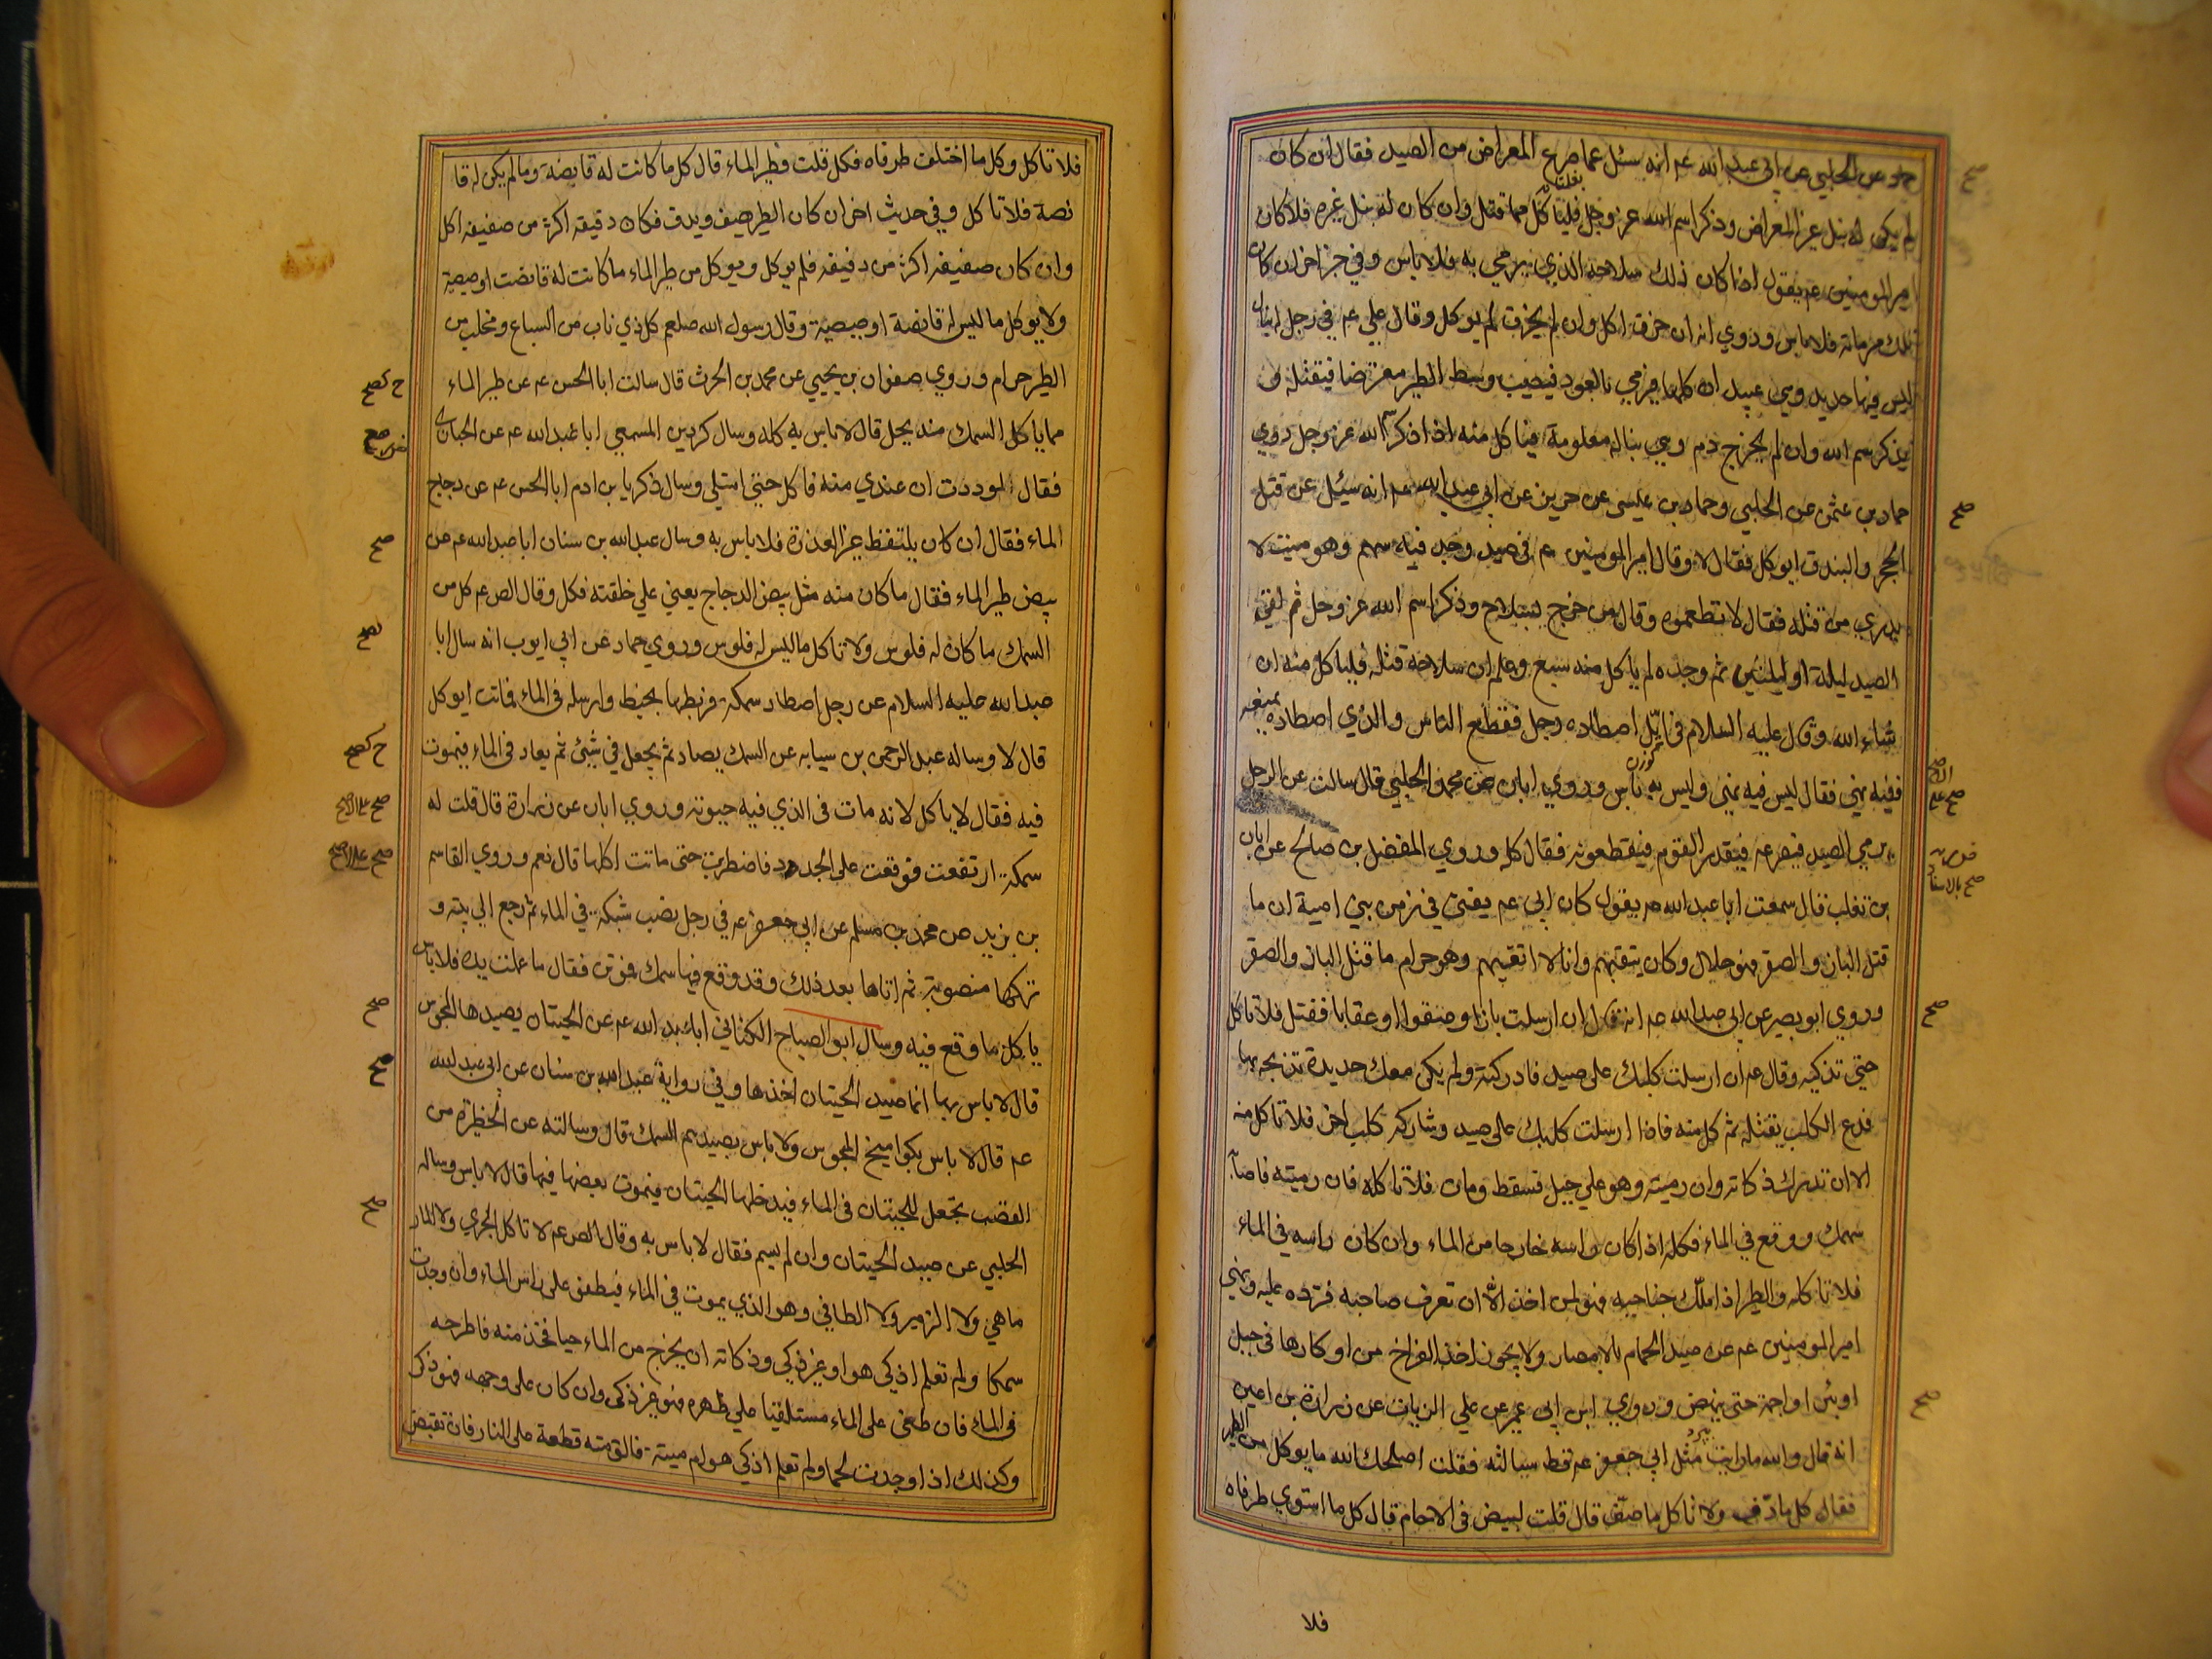 حماد عن الحلبي عن ابي عبد الله عم انه سئل عما صرع المعراض من الصيد فقال ان كان
لم يكن له نبل غير المعراض وذكر اسم الله عز وجل فلياكل مما قتل وان كان له نبل غيره فلا كان
امير المومنين عم يقول اذا كان ذلك سلاحه الذي يرمي به فلا باس وفي خبر اخر ان كان
تلك مرماته فلا باس وروي انه ان خرق اكل وان لم يخرق لم يوكل وقال علي عم في رجل له نبال
ليس فيها حديد وهي عيدان كلها فيرمي بالعود فيصيب وسط الطير معترضا فيقتله و
يذكر اسم الله وان لم يخرج دم وهي نبالة معلومة فياكل منه اذا ذكر اسم الله عز وجل روي
حماد بن عثمن عن الحلبي وحماد بن عيسى عن حريز عن ابي عبد الله عم انه سئل عن قتل
الحجر والبندق ايوكل فقال لا وقال امير المومنين عم في صيد وجد فيه سهم وهو ميت لا
يدري من قتله فقال لا تطعموه وقال من خرج بسلاح وذكر اسم الله عز وجل ثم لقي
الصيد ليلة او ليلتين ثم وجده لم ياكل منه سبع وعلم ان سلاحه قتله فلياكل منه ان
شاء الله وقال عليه السلام في ايّل اصطاده رجل فقطع الناس والذي اصطاده يمنعه
ففيه نهي فقال ليس فيه نهي وليس به باس وروي ابان عن محمد الحلبي قال سالت عن الرجل
يرمي الصيد فيصرعه فيبتدره القوم فيقطعونه فقال كله وروي المفضل بن صالح عن ابان
بن تغلب قال سمعت ابا عبد الله عم يقول كان ابي عم يفتي في زمن بني امية ان ما
قتل الباز والصقر فهو حلال وكان يتقيهم وانا لا اتقيهم وهو حرام ما قتل الباز والصقر
وروي ابو بصير عن ابي عبد الله عم انه قال ان ارسلت بازا او صقرا او عقابا فقتل فلا تاكل
حتي تذكيه وقال عم ان ارسلت كلبك على صيد فادركته ولم يكن معك حديدة تذبحه بها
فدع الكلب يقتله ثم كل منه فاذا ارسلت كلبك على صيد وشاركه كلب اخر فلا تاكل منه
الا ان تدرك ذكاته وان رميته وهو علي جبل فسقط ومات فلا تاكله فان رميته فاصابه
سهمك ووقع في الماء فكله اذا كان راسه خارجا من الماء وان كان راسه في الماء
فلا تاكله والطير اذا ملك جناحيه فهو لمن اخذه الا ان تعرف صاحبه فترده عليه ونهي
امير المومنين عم عن صيد الحمام بالامصار ولا يجوز اخذ الفراخ من اوكارها في جبل
او بئر او اجمة حتى ينهض وروي ابن ابي عمير عن علي الزيات عن زرارة بن اعين
انه قال والله ما رايت مثل ابي جعفر عم قط سالته فقلت اصلحك الله ما يوكل من الطير
فقال كل ما دف ولا تاكل ما صف قال قلت البيض في الاجام قال كل ما استوي طرفاه
فلا
فلا تاكل وكل ما اختلف طرفاه فكل قلت فطير الماء قال كل ما كانت له قانصة وما لم يكن له قا
نصة فلا تاكل وفي حديث اخر ان كان الطير يصف ويدف فكان دفيفه اكثر من صفيفه اكل
وان كان صفيفه اكثر من دفيفه فلم يوكل ويوكل من طير الماء ما كانت له قانصة او صيصية
ولا يوكل ما ليس له قانصة او صيصية وقال رسول الله صلعم كل ذي ناب من السباع ومخلب من
الطير حرام وروي صفوان بن يحيي عن محمد بن الحرث قال سالت ابا الحسن عم عن طير الماء
مما ياكل السمك منه يحل قال لا باس به كله وسال كردين المسمعي ابا عبد الله عم عن الحباري
فقال لوددت ان عندي منه فاكل حتى امتلي وسال زكريا بن ادم ابا الحسن عم عن دجاج
الماء فقال ان كان يلتقط غير العذرة فلا باس به وسال عبد الله بن سنان ابا عبد الله عم عن
بيض طير الماء فقال ما كان منه مثل بيض الدجاج يعني علي خلقته فكل وقال الص عم كل من
السمك ما كان له فلوس ولا تاكل ما ليس له فلوس وروي حماد عن ابي ايوب انه سال ابا
عبد الله عليه السلام عن رجل اصطاد سمكة فربطها بخيط وارسله في الماء فماتت ايوكل
قال لا وساله عبد الرحمن بن سيابه عن السمك يصاد ثم يجعل في شئ ثم يعاد في الماء فيموت
فيه فقال لا ياكل لانه مات في الذي فيه حيوته وروي ابان عن زرارة قال قلت له
سمكة ارتفعت فوقعت على الجدد فاضطربت حتى ماتت اكلها قال نعم وروي القاسم
بن بريد عن محمد بن مسلم عن ابي جعفر عم في رجل نصب شبكة في الماء ثم رجع الي بيته و
تركها منصوبة ثم اتاها بعد ذلك وقد وقع فيها سمك فموتن فقال ما عملت يده فلا باس
ياكل ما وقع فيه وسال ابو الصباح الكناني ابا عبد الله عم عن الحيتان يصيدها المجوس
قال لا باس بها انما صيد الحيتان اخذها وفي رواية عبد الله بن سنان عن ابي عبد الله
عم قال لا باس بكواميخ المجوس ولا باس بصيدهم السمك قال وسالته عن الحظيرة من
القصب تجعل للحيتان في الماء فيدخلها الحيتان فيموت بعضها فيها قال لا باس وساله
الحلبي عن صيد الحيتان وان لم يسم فقال لا باس به وقال الص عم لا تاكل الجري ولا المار
ماهي ولا الزمير ولا الطافي وهو الذي يموت في الماء فيطفو على راس الماء وان وجدت
سمكا ولم تعلم اذكي هو او غير ذكي وذكاته ان يخرج من الماء حيا فخذ منه فاطرحه
في الماء فان طفى على الماء مستلقيا علي ظهره فهو غير ذكي وان كان على وجهه فهو ذكي
وكذلك اذا وجدت لحما ولم تعلم اذكي هو ام ميتة فالق منه قطعة على النار فان تقبض